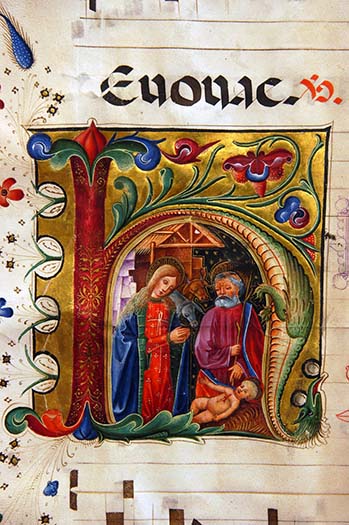 Euouae.
H